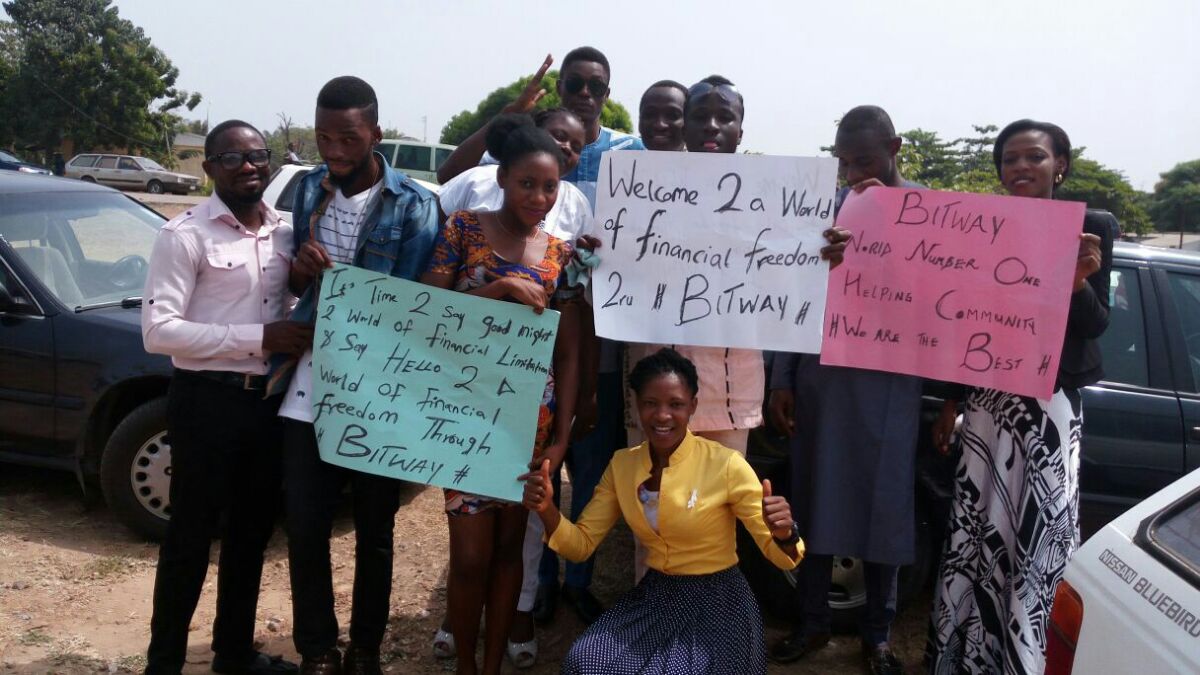 It's Time 2 Say good night
2 World of Financial Limitation
& Say HELLO 2 A
World of Financial
freedom Through
# BITWAY #
Welcome 2 a World
of financial freedom
2ru # BITWAY #
BITWAY
World Number One
Helping Community
# We are the Best #
NISSAN BLUEBIRD